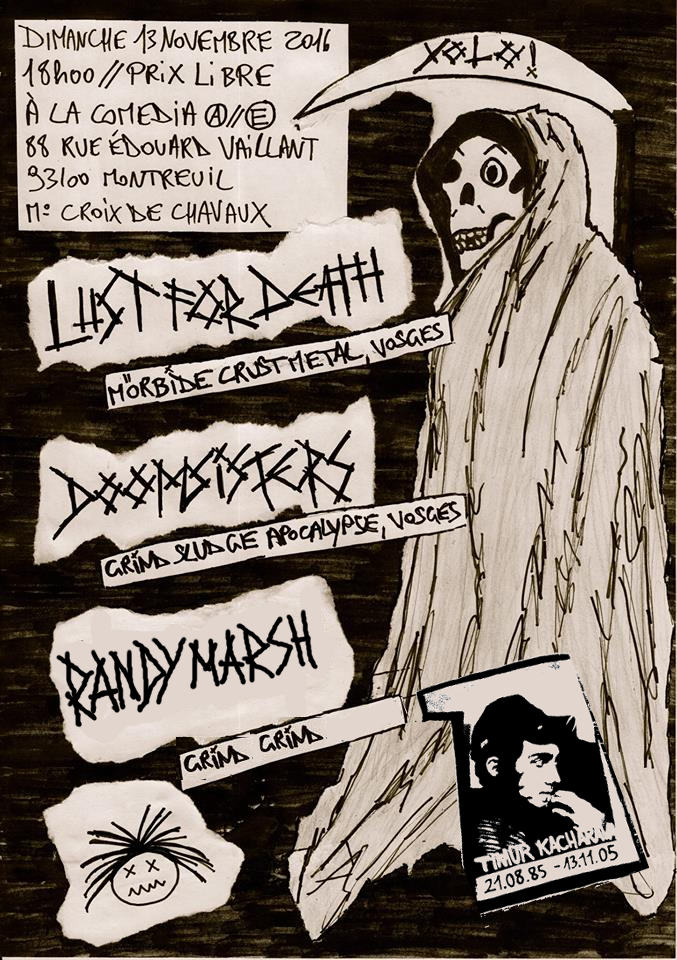 DIMANCHE 13 NOVEMBRE 2016
18h00 // PRIX LIBRE
À LA COMEDIA Ⓐ//Ⓔ
88 RUE ÉDOUARD VAILLANT
93100 MONTREUIL
M° CROIX DE CHAVAUX
YOLO!
LUST FOR DEATH
MÖRBIDE CRUST METAL, VOSGES
DOOMSISTERS
GRIND SLUDGE APOCALYPSE, VOSGES
RANDY MARSH
GRIND GRIND
TIMUR KACHARAVA
21.08.85 - 13.11.05